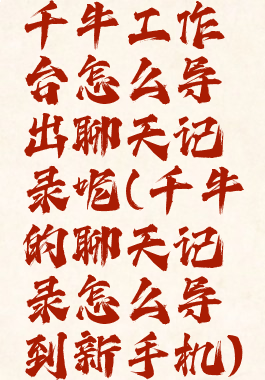 千牛工作
台怎么导
出聊天记
录呢(千牛
的聊天记
录怎么导
到新手机)